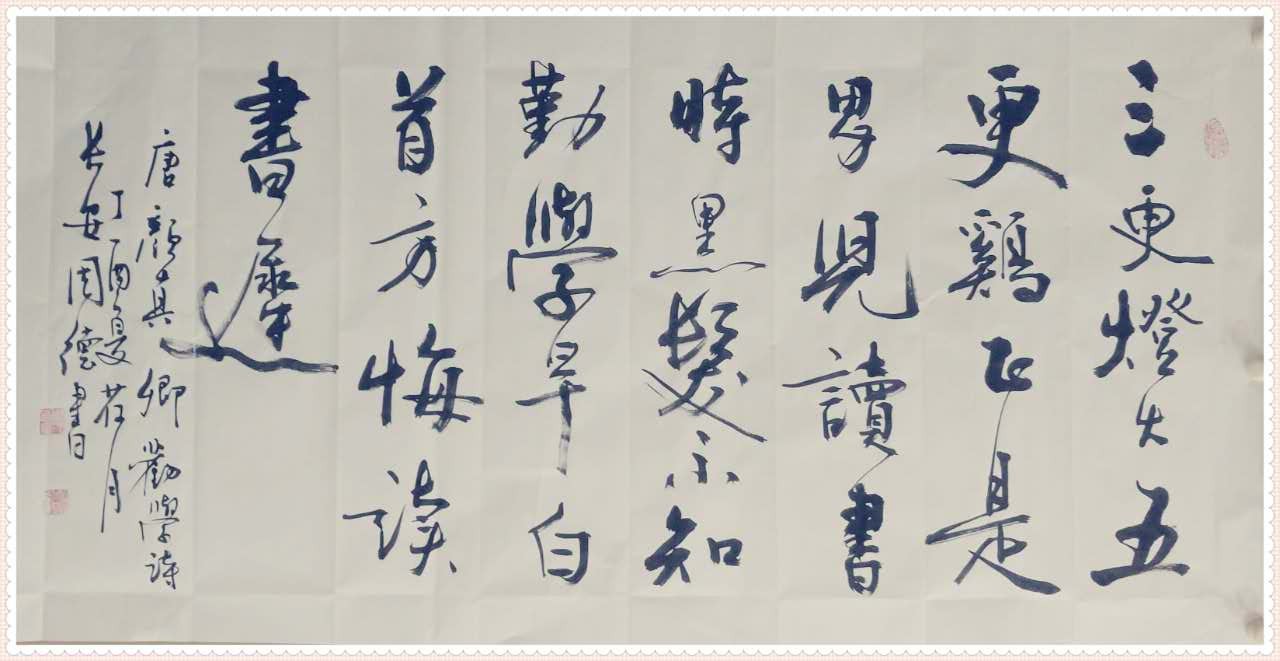 三更燈火五
更鷄正是
男兒讀書
時黑髮不知
勤學早白
首方悔读
書遲
唐顏真卿勸學詩
丁酉夏荷月
長安周德書